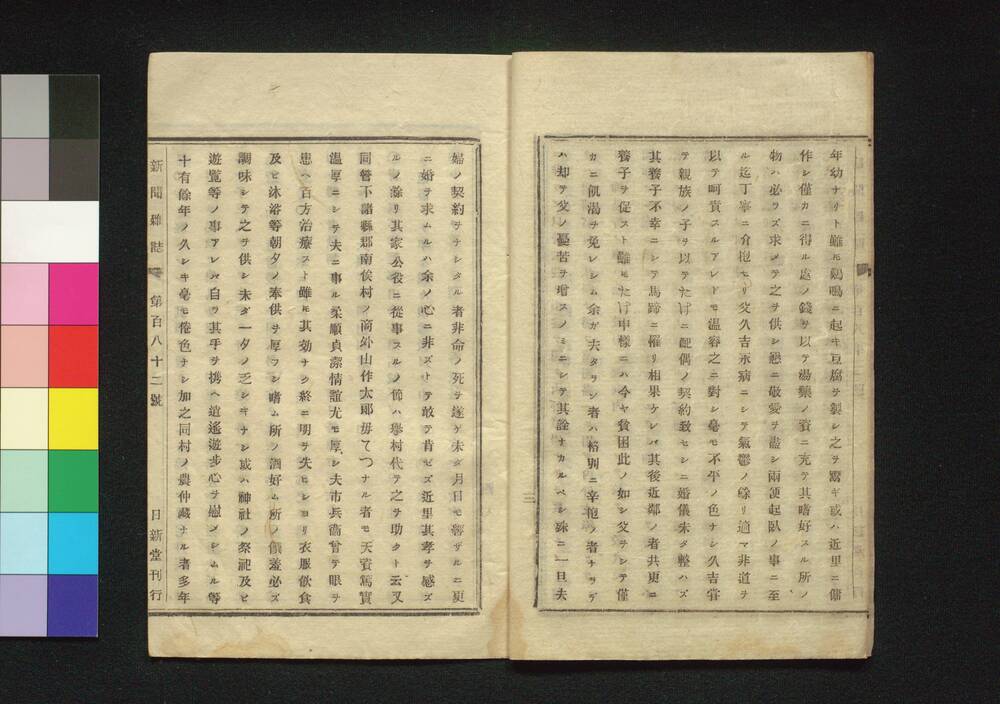 年幼ナリト雖モ鷄鳴ニ起キ豆腐ヲ製シ之ヲ鬻ギ或ハ近里ニ傭
作シ僅カニ得ル處ノ錢ヲ以テ湯藥ノ資ニ充テ其嗜好スル所ノ
物ハ必ラズ求メテ之ヲ供シ戀ニ敬愛ヲ盡シ兩便起臥ノ事ニ至
ル迄丁寧ニ介抱セリ父久吉永病ニシテ氣鬱ノ餘リ適マ非道ヲ
以テ呵責スルアレドモ温容之ニ對シ毫モ不平ノ色ナシ久吉甞
テ親族ノ子ヲ以テたけニ配偶ノ契約致セシニ婚儀未タ整ハズ
其養子不幸ニシテ馬蹄ニ罹リ相果ケレバ其後近鄰ノ者共更ニ
養子ヲ促スト雖モたけ申樣ニハ今ヤ貧困此ノ如シ父ヲシテ僅
カニ飢渇ヲ免レシム余ガ夫タラン者ハ格別ニ辛抱ノ者ナラデ
ハ却テ父ノ憂苦ヲ增スノミニシテ其詮ナカルベシ殊ニ一旦夫
三
婦ノ契約ヲナシタル者非命ノ死ヲ遂ケ未タ月日モ經ザルニ更
ニ婚ヲ求ムルハ余ノ心ニ非ズトテ敢テ肯ゼズ近里其孝ヲ感ズ
ルノ餘リ其家公役ニ從事スルノ節ハ擧村代テ之ヲ助クト云又
同管下諸縣郡南俣村ノ商外山作太郎母てつナル者モ天資篤實
温厚ニシテ夫ニ事ル柔順貞潔情誼尤モ厚シ夫市兵衞曾テ眼ヲ
患ヘ百方治療スト雖モ其効ナク終ニ明ヲ失ヒシヨリ衣服飮食
及ヒ沐浴等朝夕ノ奉供ヲ厚フシ嗜ム所ノ酒好ム所ノ饌羞必ズ
調味シテ之ヲ供シ未ダ一夕ノ乏シキナシ或ハ神社ノ祭祀及ヒ
遊覽等ノ事アレバ自ラ其手ヲ携ヘ逍遙遊步心ヲ慰メシムル等
十有餘年ノ久シキ毫モ倦色ナシ加之同村ノ農仲藏ナル者多年
新聞雜誌 第百八十二號 日新堂刊行